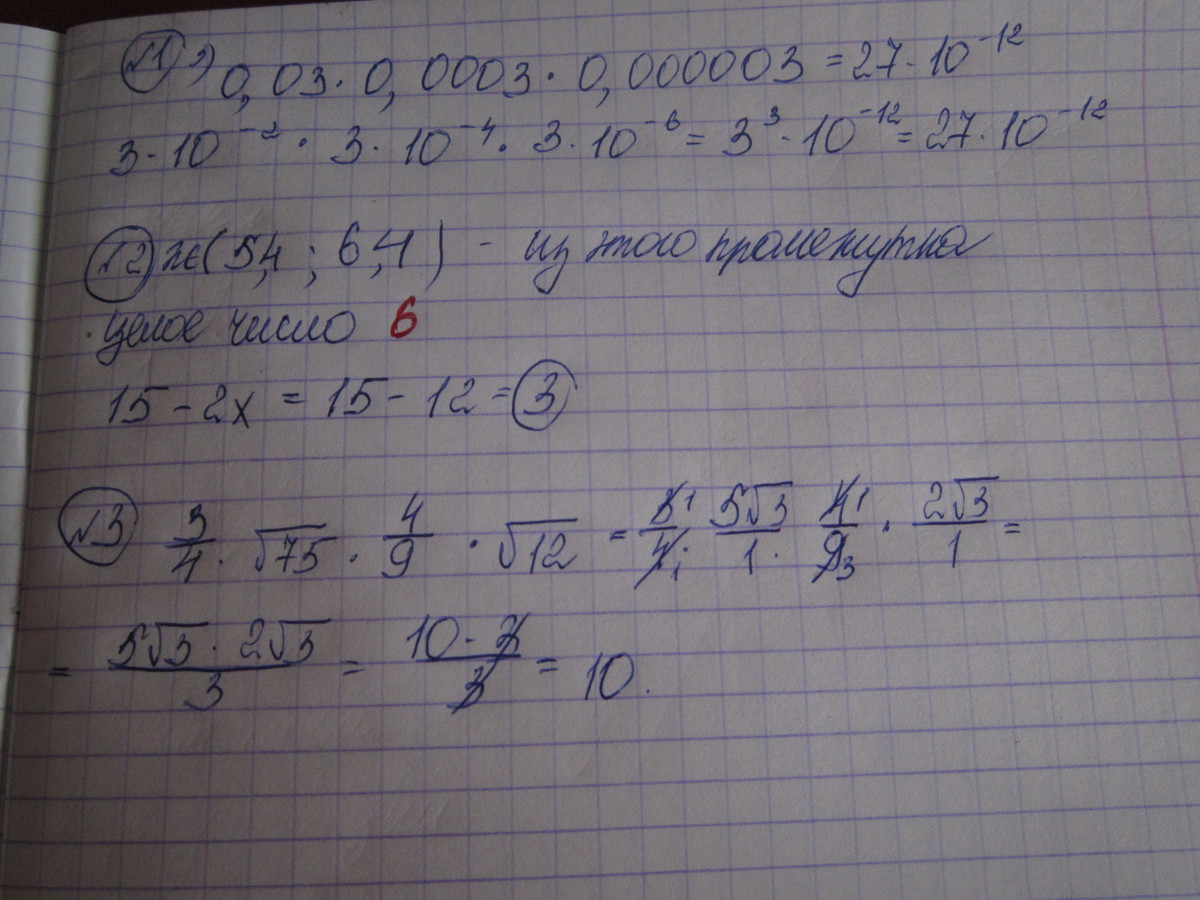 №1 3) 0,03 · 0,0003 · 0,000003 = 27 · 10⁻¹²
3 · 10⁻² · 3 · 10⁻⁴ · 3 · 10⁻⁶ = 3³ · 10⁻¹² = 27 · 10⁻¹²
№2 x∈(5,4 ; 6,4) - из этого промежутка
целое число 6
15 - 2x = 15 - 12 = 3
№3 3/4 · √75 · 4/9 · √12 = 3¹/4₁ · 5√3/1 · 4¹/9₃ · 2√3/1 =
= 5√3 · 2√3/3 = 10 · 3/3 = 10.